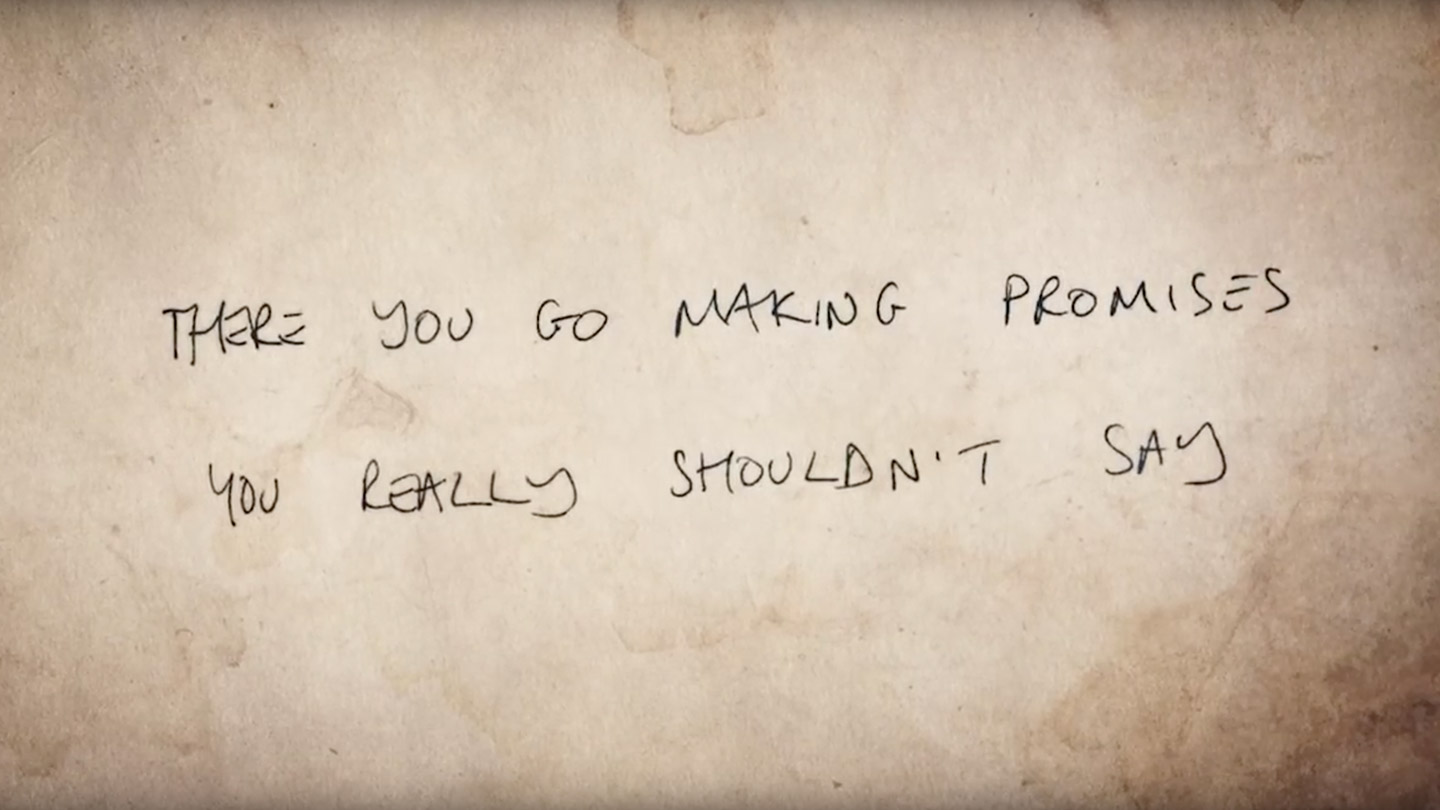 THERE YOU GO MAKING PROMISES
YOU REALLY SHOULDN'T SAY